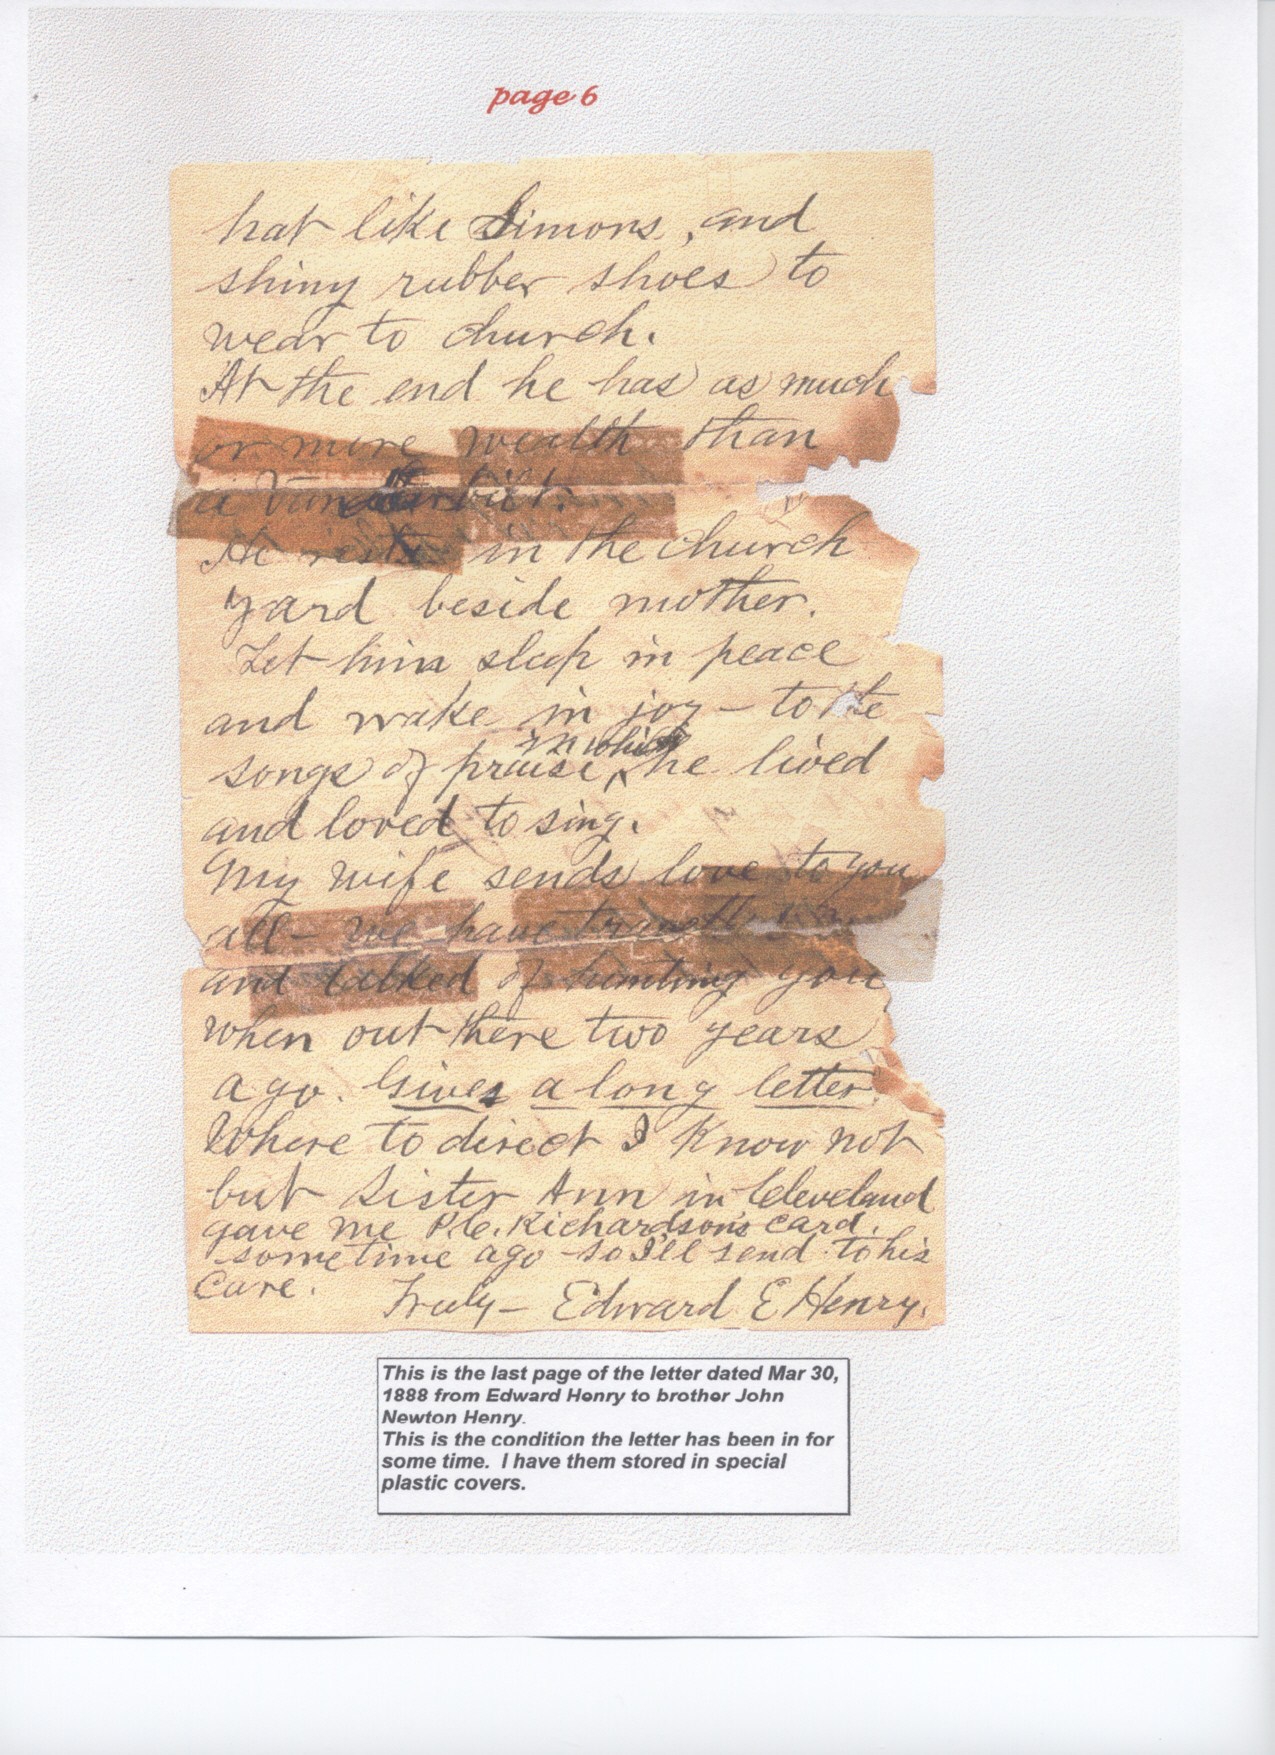 page 6
hat like Simons, and
shiny rubber shoes to
wear to church.
At the end he has as much
or more wealth than
a Vanderbilt.
He rests in the church
yard beside mother.
Let him sleep in peace
and wake in joy – to the
songs of praise, in which he lived
and loved to sing.
My wife sends love to you
all – we have
and talked of hunting you
when out there two years
ago. Give a long letter.
Where to direct I know not
but Sister Ann in Cleveland
gave me P.C. Richardson's card.
sometime ago – so I'll send to his
care. Truly – Edward E Henry.
This is the last page of the letter dated Mar 30,
1888 from Edward Henry to brother John
Newton Henry.
This is the condition the letter has been in for
some time. I have them stored in special
plastic covers.